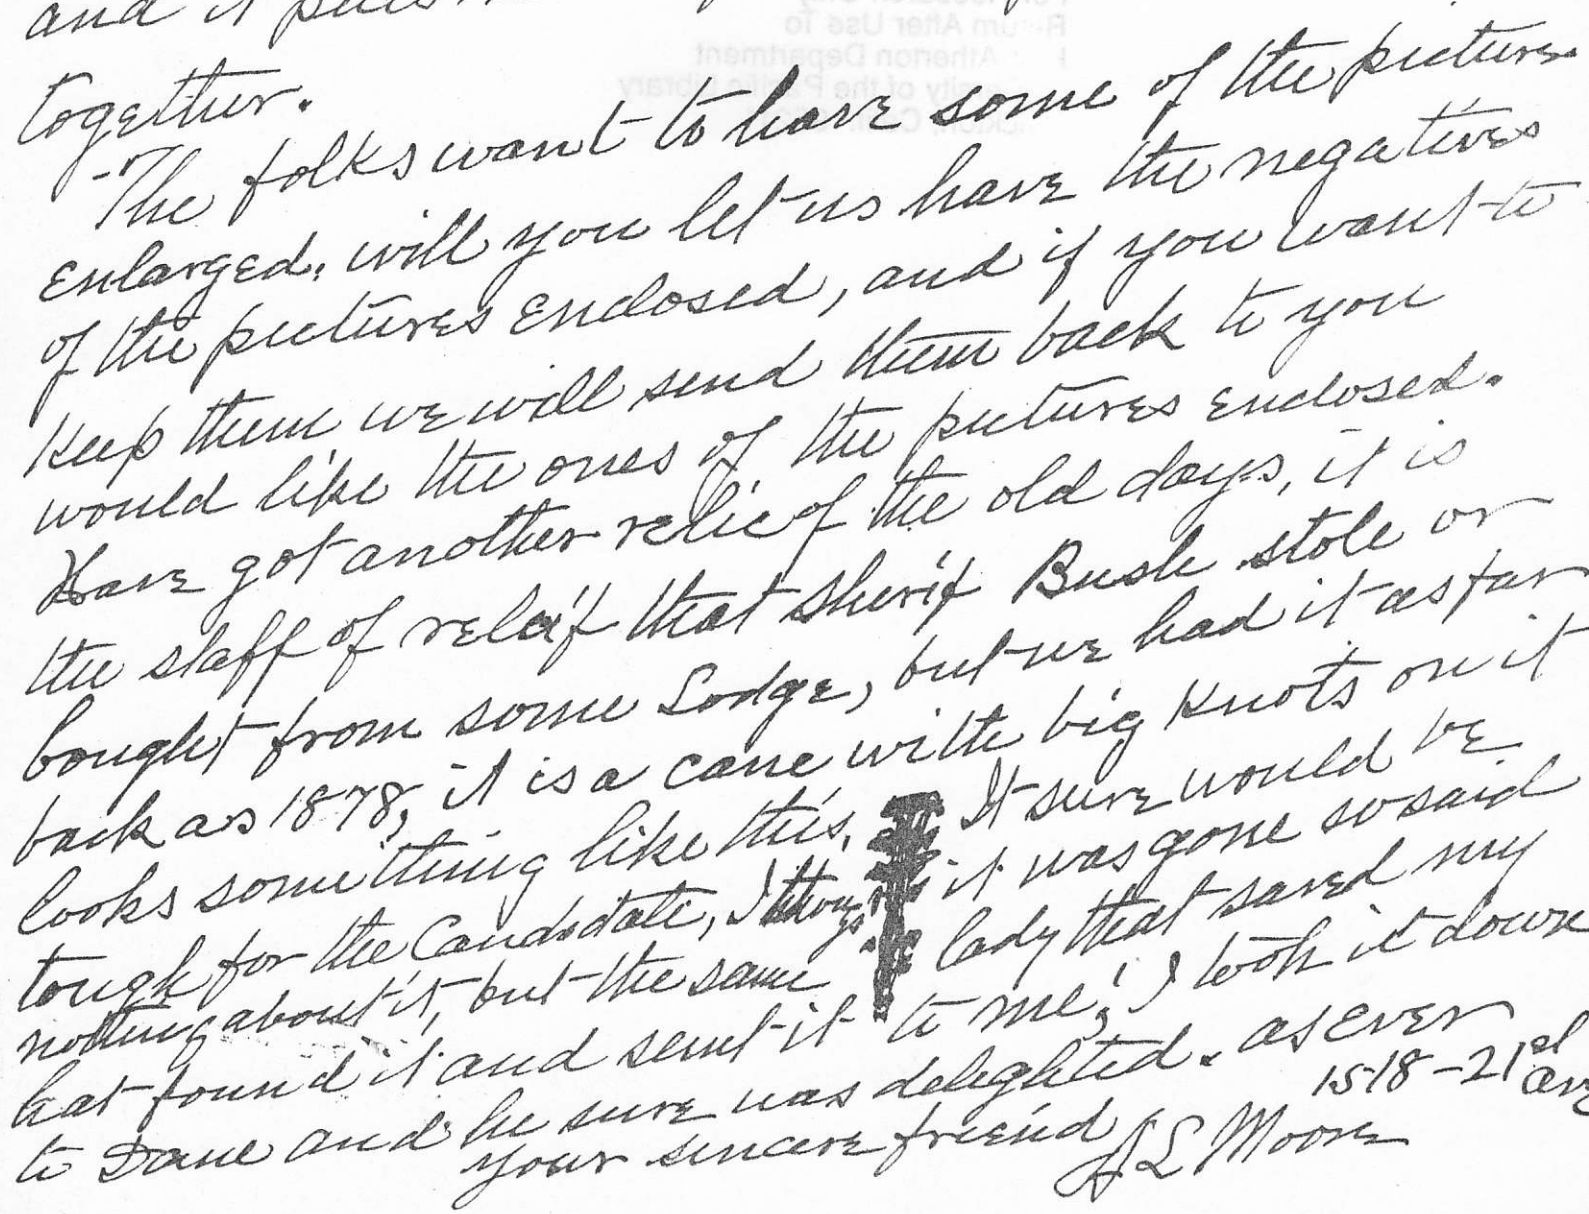 and it
together.
The folks want to have some of the pictures
enlarged, will you let us have the negatives
of the pictures enclosed, and if you want to
keep them we will send them back to you
would like the ones of the pictures enclosed.
Have got another relic of the old days, it is
the staff of releif that Sherif Bush stole or
bought from some Lodge, but we had it as far
back as 1878, it is a cane with big knots on it
looks something like this. It sure would be
tough for the Candidate, I it was gone so said
nothing about it, but the same lady that saved my
hat found it and sent it to me, I took it down
to Dane and he sure was delighted. as ever
your sincere friend J L Moore
1518-21st ave
Return After Use To
Atherton Department
of the Pacific Library